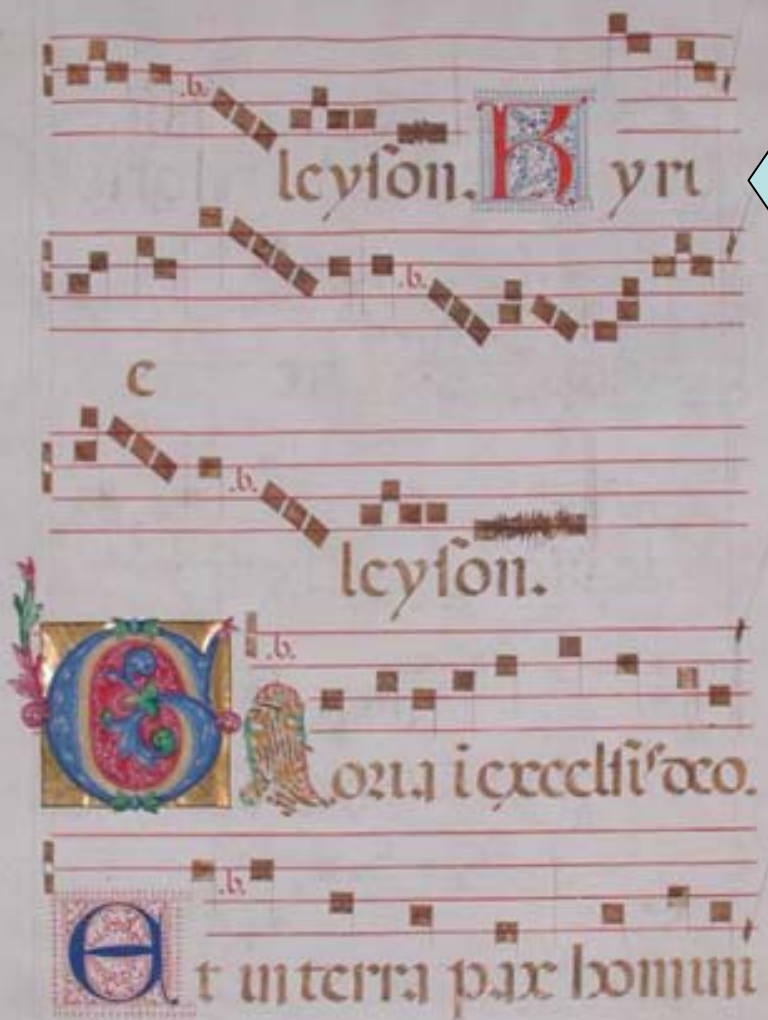 .b.
leyson. Kyri
.b.
e
.b.
leyson.
.b.
Gloria i excelsis deo.
.b.
Et in terra pax homini